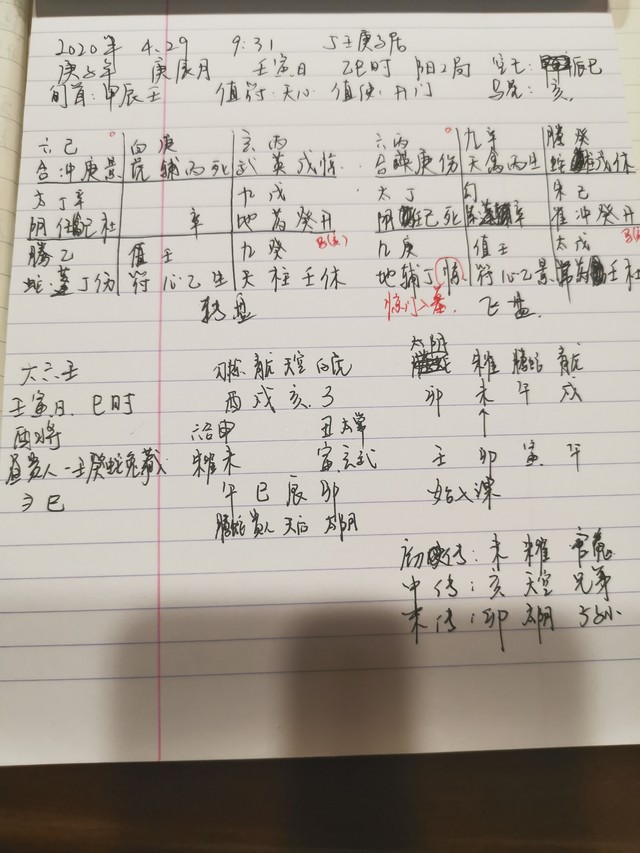 2020年 4.29 9:31 丁壬庚子居
庚子年 庚辰月 壬寅日 乙巳时 阳2局 空亡: 辰巳
旬首:甲辰壬 值符:天心 值使:开门 马克:亥
六己 白庚 玄丙 六丙 九辛 腾癸
合冲庚景 虎辅丙死 武英戊惊 合 庚伤 天禽丙生 蛇 戊休
太丁辛 九戊 太丁 勾 朱己
阴任 己杜 辛 地芮癸开 阴 己死 辛 雀冲癸开
腾乙 值壬 九癸 九庚 值壬 太戊
蛇蓬丁伤 符心乙生 天柱壬休 地辅丁惊 符心乙景 常芮 壬杜
转盘 惊门入墓 飞盘
大六壬 勾陈 青龙 天空 白虎 太阴 朱雀 腾蛇 青龙
壬寅日 巳时 酉 戌 亥 子 卯 未 午 戌
酉将 六合申 丑太常 ↑
昼贵人-壬癸蛇兔藏 朱雀未 寅玄武 壬 卯 寅 午
⇒巳 午 巳 辰 卯 始入课
腾蛇 贵人 天后 太阴
初传:未 朱雀 官鬼
中传:亥 天空 兄弟
末传:卯 太阴 子孙